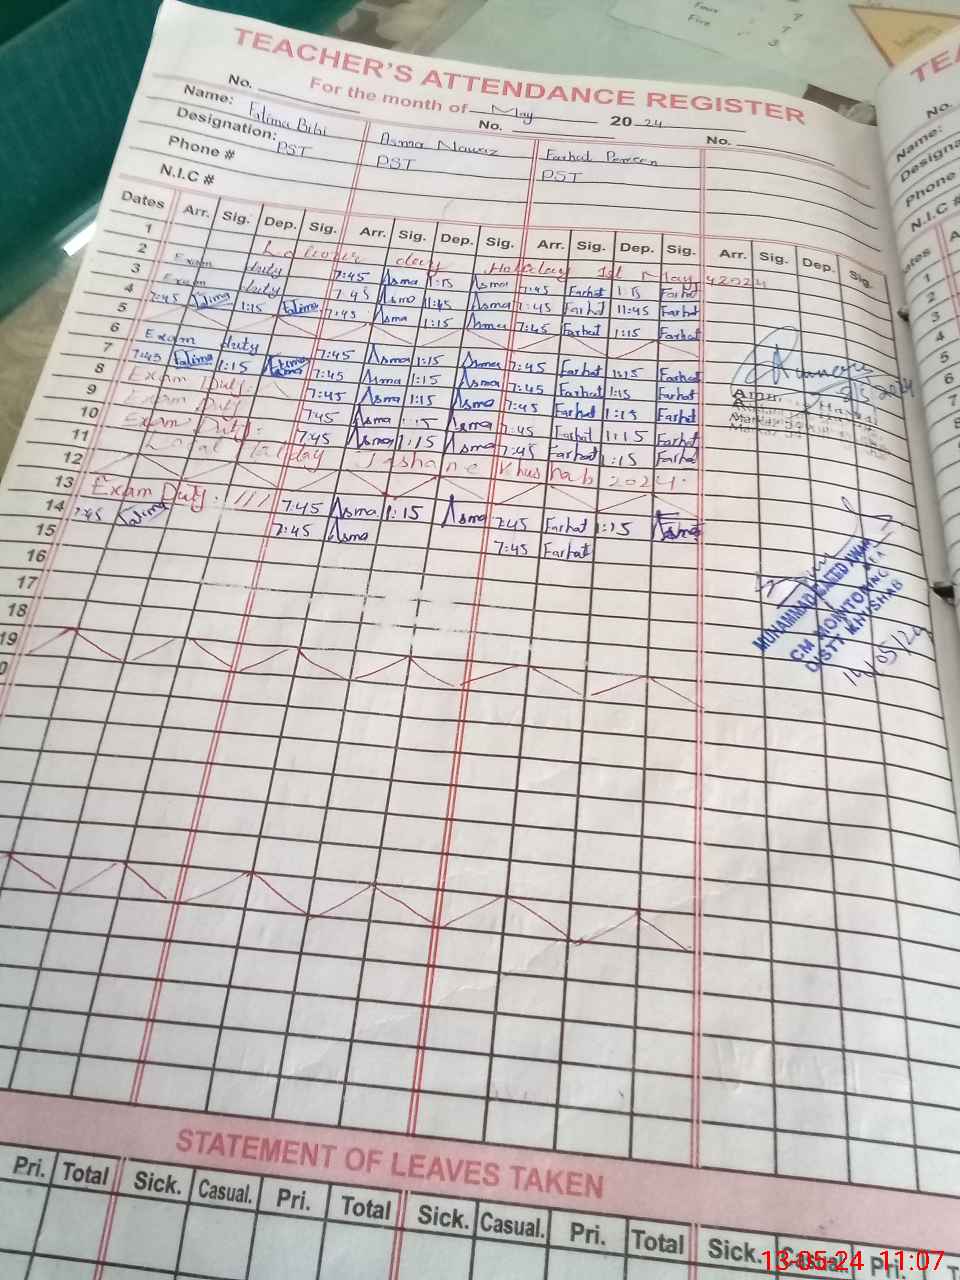 Four 7
Five 7
3
TEACHER'S ATTENDANCE REGISTER
For the month of May 2024
No. No. No.
Name: Fatima Bibi Asma Nawaz Farhat Parveen
Designation: PST PST PST
Phone #
N.I.C #
Dates Arr. Sig. Dep. Sig. Arr. Sig. Dep. Sig. Arr. Sig. Dep. Sig. Arr. Sig. Dep. Sig.
1 Labour day Holiday 1st May 2024
2 Exam duty 7:45 Asma 1:15 Asma 7:45 Farhat 1:15 Farhat
3 Exam duty 7:45 Asma 11:45 Asma 7:45 Farhat 11:45 Farhat
4 7:45 Fatima 1:15 Fatima 7:45 Asma 1:15 Asma 7:45 Farhat 1:15 Farhat
5
6 Exam duty 7:45 Asma 1:15 Asma 7:45 Farhat 1:15 Farhat
7 7:45 Fatima 1:15 Fatima 7:45 Asma 1:15 Asma 7:45 Farhat 1:15 Farhat
8 Exam Duty: 7:45 Asma 1:15 Asma 7:45 Farhat 1:15 Farhat
9 Exam Duty 7:45 Asma 1:15 Asma 7:45 Farhat 1:15 Farhat
10 Exam Duty: 7:45 Asma 1:15 Asma 7:45 Farhat 1:15 Farhat
11 Local Holiday Jashane Khushab 2024.
12
13 Exam Duty: 7:45 Asma 1:15 Asma 7:45 Farhat 1:15 Asma
14 7:45 Fatima 7:45 Asma 7:45 Farhat
15
16
17
18
19
MUHAMMAD SAEED AWAN
CM MONITORING
DISTT KHUSHAB
14/05/24
STATEMENT OF LEAVES TAKEN
Pri. Total Sick. Casual. Pri. Total Sick. Casual. Pri. Total Sick. Casual. Pri.
13-05-24 11:07
No.
Name:
Phone
N.I.C #
1
2
3
4
5
6
7
8